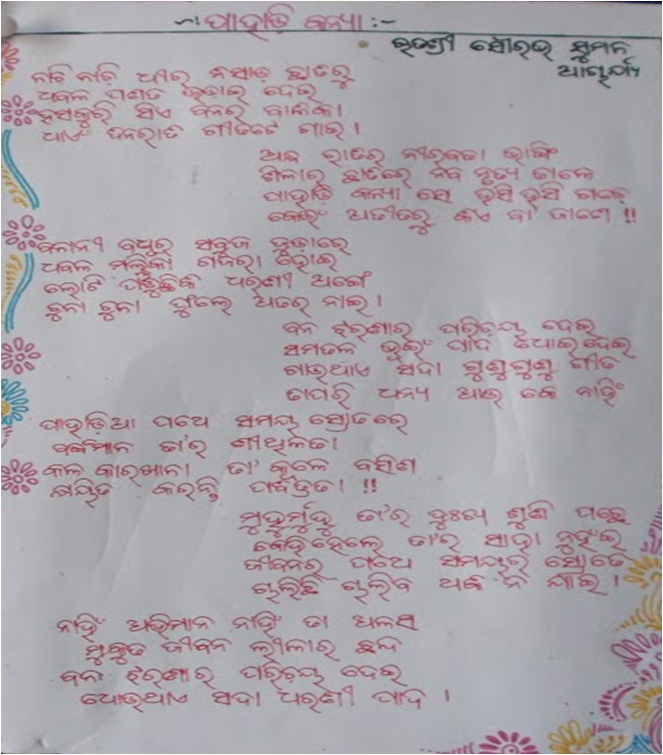 ପାହାଡ଼ି କନ୍ୟା :-
ଭତଶ୍ରୀ ସୌରଭ ସୁମନ
ଆଚାର୍ଯ୍ୟ
ନଚି ନଚି ଧୀର ନିସାଡ଼ ଛାତରୁ
ଧବଳ ପଣତ ଉଡ଼ାଇ ଦେଇ
ହସକୁରି ସିଏ ବନର ବାଳିକା
ଧାଏଁ ଦିନରାତି ଗୀତଟେ ଗାଇ ।
ଅନ୍ଧ ରାତିର ନୀରବତା ଭାଙ୍ଗି
ଶିଳାର ଛାତିରେ ନବ ନୃତ୍ୟ ତାଳେ
ପାହାଡ଼ି କନ୍ୟା ସେ ହସି ହସି ଗଡ଼େ
କେଉଁ ଅତୀତରୁ କିଏ ବା ଜାଣେ !!
ବନାନୀ ବଧୂର ସବୁଜ ଜୁଡ଼ାରେ
ଧବଳ ମଲ୍ଲିକା ଗଜରା ହୋଇ
ଲୋଟି ପଡ଼ୁଛିକି ଧରଣୀ ଅଙ୍ଗେ
ଚୁନା ଚୁନା ଫୁଲେ ଅତର ନାଇ ।
ବନ ଝରଣାର ପରିଚୟ ଦେଇ
ସମତଳ ଭୂଇଁ ପାଦ ଧୋଇଦେଇ
ଗାଉଥାଏ ସଦା ଗୁଣୁଗୁଣୁ ଗୀତ
ତାପରି ଧନ୍ୟ ଆଉ କେ ନାହିଁ
ପାହାଡ଼ିଆ ପଥେ ସମୟ ସ୍ରୋତରେ
ବର୍ତ୍ତମାନ ତା'ର ଶୀଥିଳତା
କଳ କାରଖାନା ତା' କୂଳେ ବସିଣ
ଖଣ୍ଡିତ କରନ୍ତି ପବିତ୍ରତା !!
ମୁହୁର୍ମୁହୁ ତା'ର ଦୁଃଖ ଶୁଣି ପଛେ
କେହି ହେଲେ ତା'ର ସାହା ନୁହଁଇ
ଜୀବନର ପଥେ ସମୟର ସ୍ରୋତେ
ଚାଲିଛି ଚାଲିବ ଥକି ନ ଯାଇ ।
ନାହିଁ ଅଭିମାନ ନାହିଁ ତା ଅଳସ
ମୁକୁତ ଜୀବନ ଲୀଳାର ଛନ୍ଦି
ବନ ଝରଣାର ପରିଚୟ ଦେଇ
ଧୋଉଥାଏ ସଦା ଧରଣୀ ପାଦ ।